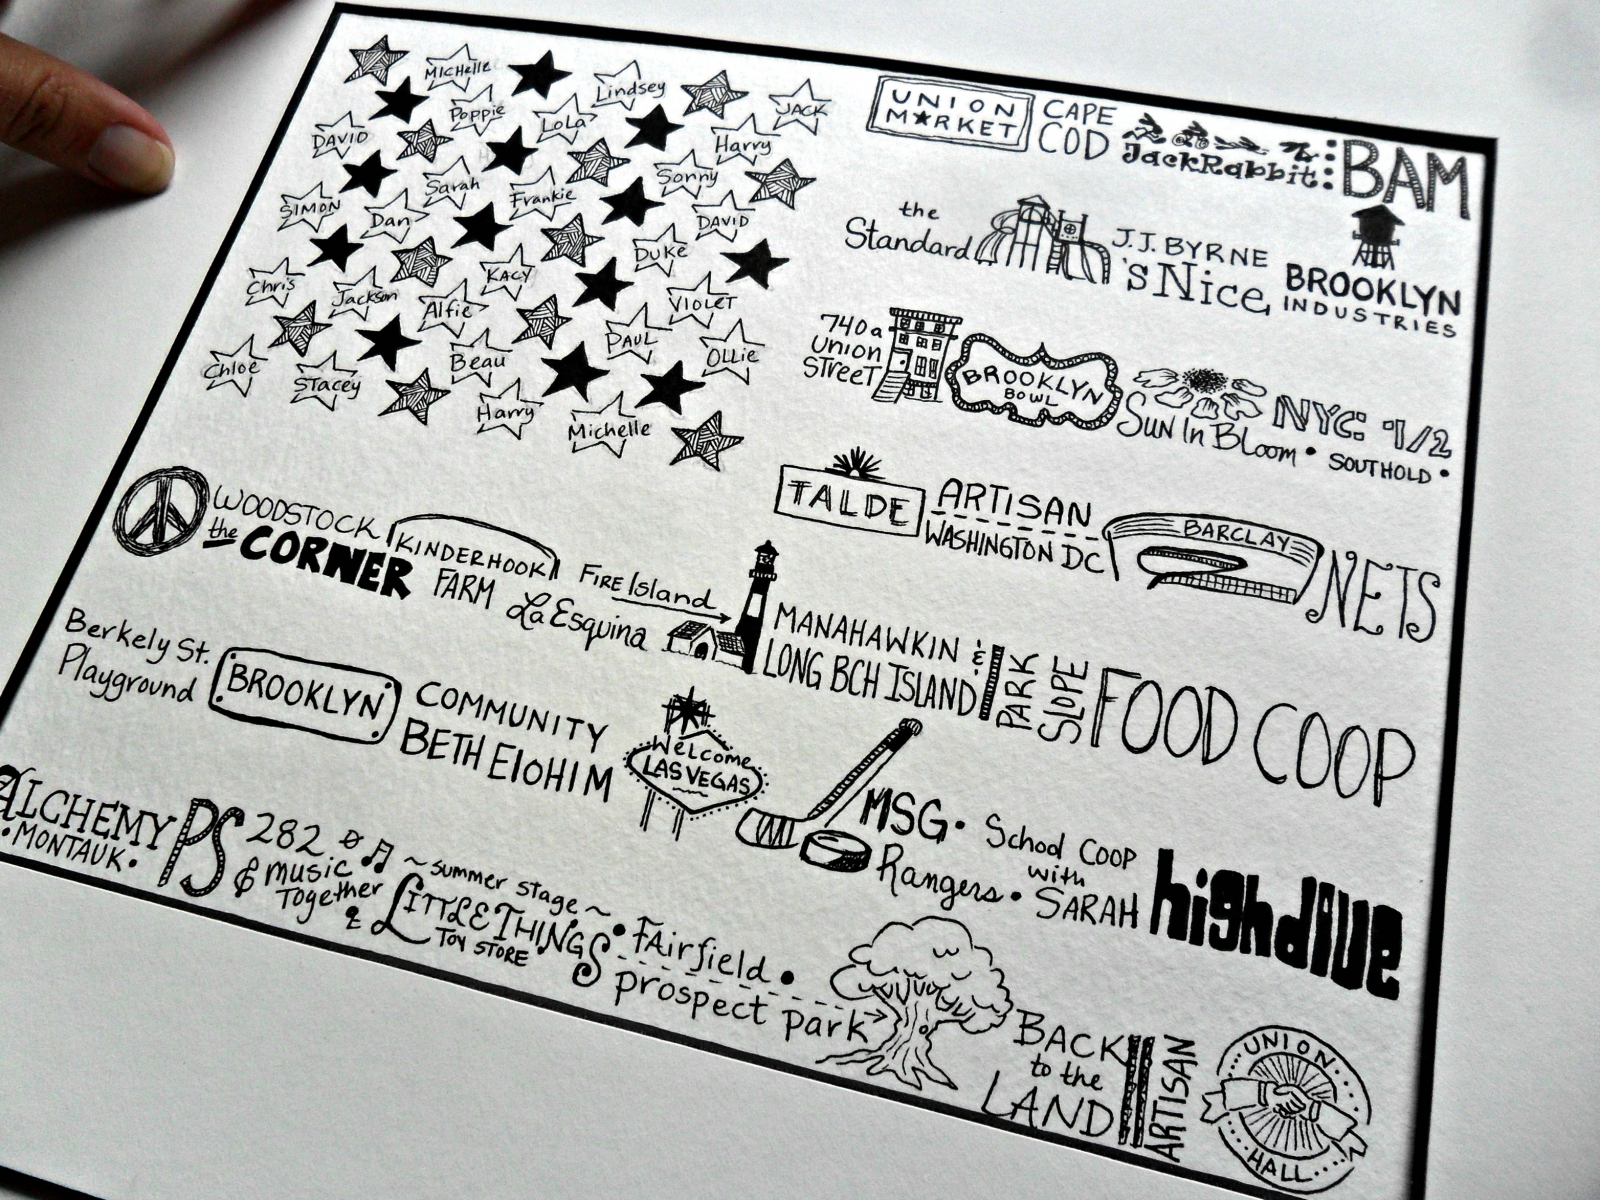 Michelle
Lindsey
JACK
Poppie
Lola
DAVID
Harry
Sarah
Frankie
Sonny
SIMON
Dan
DAVID
Duke
Chris
Jackson
KACY
Alfie
VIOLET
PAUL
OLLIE
Chloe
Stacey
Beau
Harry
Michelle
UNION
MARKET
CAPE
COD
JackRabbit
BAM
the
Standard
J.J. BYRNE
'sNice,
BROOKLYN
INDUSTRIES
740a
UNION
STREET
BROOKLYN
BOWL
Sun In Bloom •
NYC: 1/2
SOUTHOLD •
TALDE
ARTISAN
WASHINGTON DC
BARCLAY
NETS
WOODSTOCK
the CORNER
KINDERHOOK
FARM
La Esquina
Fire Island
MANAHAWKIN &
LONG BCH ISLAND
PARK
SLOPE
FOOD COOP
Berkely St.
Playground
BROOKLYN
COMMUNITY
BETH ElOHIM
Welcome
LAS VEGAS
MSG •
Rangers •
School Coop
with
SARAH
highdive
ALCHEMY
• MONTAUK •
PS 282
& music
Together
&
~ Summer stage ~
LITTLE THINGS
TOY STORE
• FAirfield •
prospect park
BACK
to the
LAND
ARTISAN
UNION
HALL